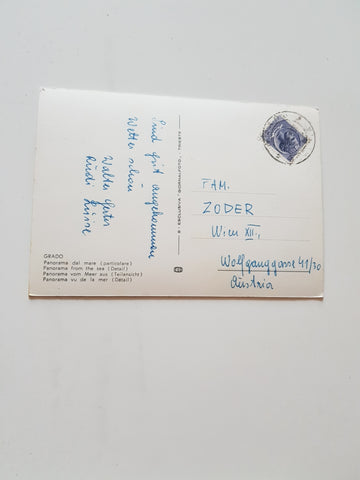 Sind gut angekommen
Wetter schön
Walter
GRADO
Panorama dal mare (particolare)
Panorama from the sea (Detail)
Panorama vom Meer aus (Teilansicht)
Panorama vu de la mer (Détail)
FAM.
ZODER
Wien XII.,
Wolfganggasse 41/30
Austria